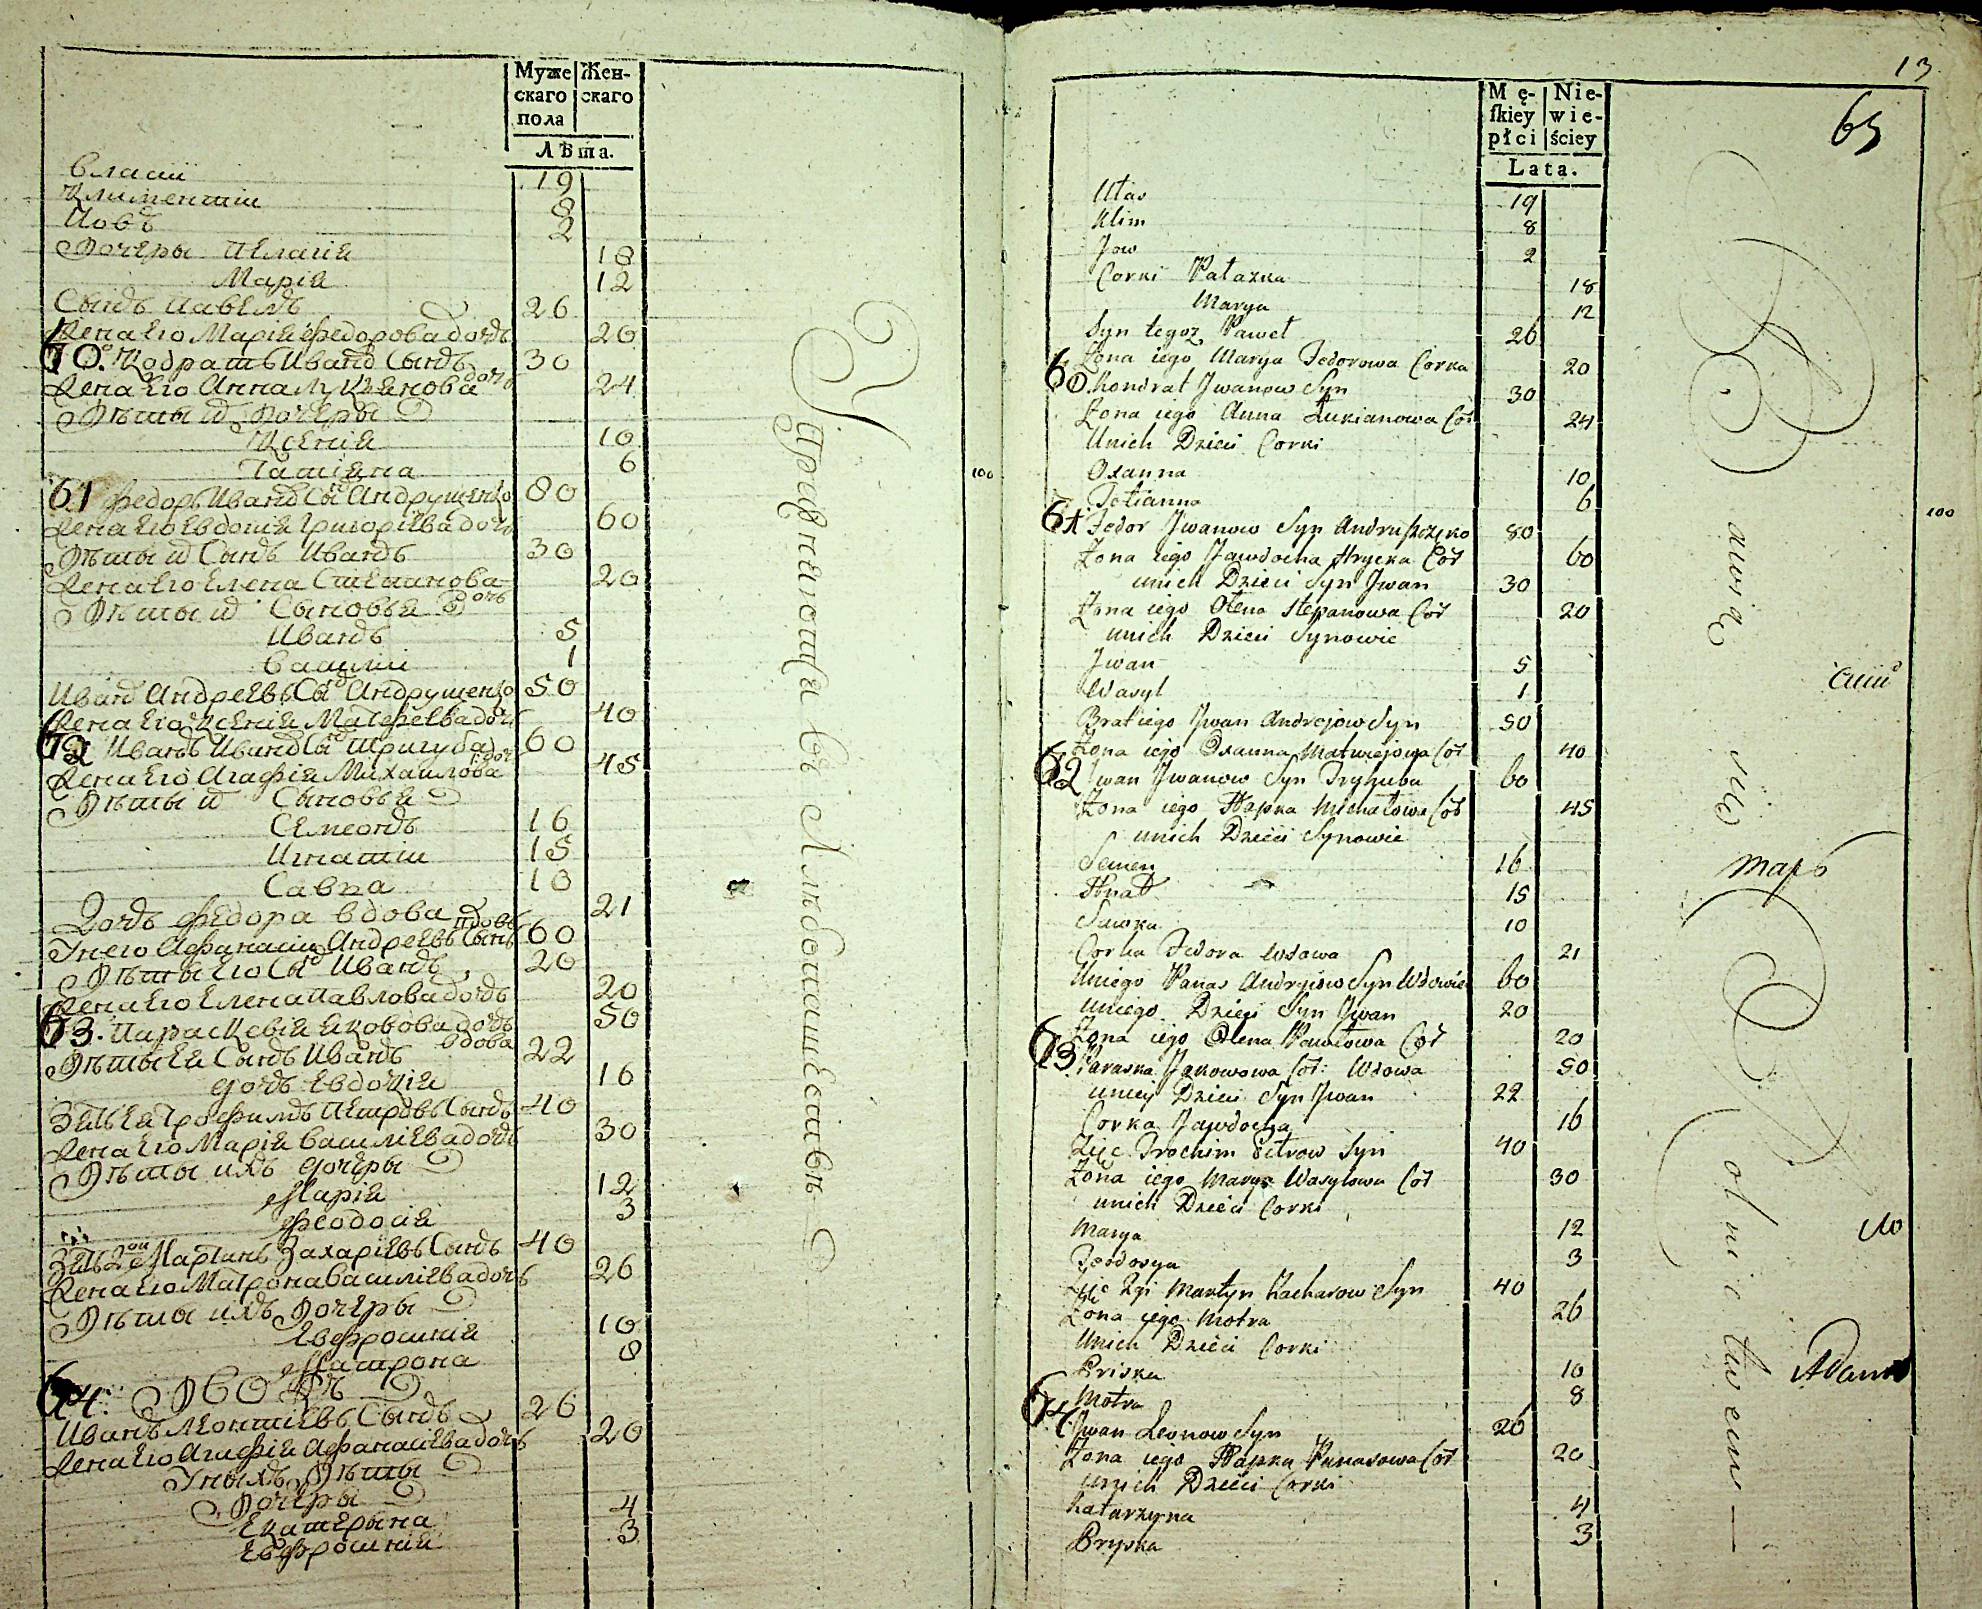 Муже Жен-
скаго скаго
пола
Лѣта.
Власій 19
Климентій 8
Иовъ 2
Дочеры Пелагія 18
Марія 12
Сынъ Павелъ 26
Жена Его Марія Федорова дочь 20
60. Кодратъ Иванъ Сынъ 30
Жена Его Анна Лукянова дочь 24
Дѣты и Дочеры
Ксенія 10
Татіяна 6
61 Федоръ Иванъ Сынъ Андрущенко 80
Жена Его Евдокія Григоріева дочь 60
Дѣты и Сынъ Иванъ 30
Жена Его Елена Степанова дочь 20
Дѣты и Сыновья
Иванъ 5
Василій 1
Иванъ Андреевъ Сынъ Андрущенко 50
Жена Его Ксенія Матфеева дочь 40
62 Иванъ Иванъ Сынъ Тригуба 60
Жена Его Агафія Михаилова дочь 45
Дѣты и Сыновья
Семеонъ 16
Игнатій 15
Савка 10
Дочь Федора вдова 21
У него Афанасій Андреевъ Сынъ вдовъ 60
Дѣты Его Сынъ Иванъ 20
Жена Его Елена Павлова дочь 20
63. Параскевія Яковова дочь вдова 50
Дѣты Ея Сынъ Иванъ 22
дочь Евдокія 16
Зять Ея Трофимъ Петровъ Сынъ 40
Жена Его Марія Василіева дочь 30
Дѣты ихъ дочеры
Марія 12
Феодосія 3
Зять 2ой Мартинъ Захаріевъ Сынъ 40
Жена Его Матрона Василіева дочь 26
Дѣты ихъ Дочеры
Евфросинія 10
Матрона 8
64. Дворъ
Иванъ Леонтіевъ Сынъ 26
Жена Его Агафія Афанасіева дочь 20
У ныхъ Дѣты
Дочеры
Екатерына 4
Евфросинія 3
100
13
65
Mę- Nie-
skiey wie-
płci ściey
Lata.
Ułas 19
Klim 8
Jow 2
Corki Pałazka 18
Marya 12
Syn tegoż Paweł 26
Żona iego Marya Fedorowa Corka 20
60. Kondrat Jwanow Syn 30
Żona iego Anna Łukianowa Cór 24
Unich Dzieci Corki
Oxanna 10
Tetianna 6
61 Fedor Jwanow Syn Andruszczęko 80
Żona iego Jawdocha Hrycka Cór 60
unich Dzieci Syn Jwan 30
Żona iego Ołena Stepanowa Cór 20
unich Dzieci Synowie
Jwan 5
Wasyl 1
Brat iego Jwan Andrejow Syn 50
Żona iego Oxanna Matwiejowa Cór 40
62 Jwan Jwanow Syn Tryhuba 60
Żona iego Hapka Michałowa Cór 45
unich Dzieci Synowie
Semen 16
Hnat 15
Sawka 10
Corka Fedora Wdowa 21
Uniego Panas Andryiow Syn Wdowiec 60
Uniego Dzieci Syn Jwan 20
Żona iego Olena Pawłowa Cór 20
63 Paraska Jakowowa Cór: Wdowa 50
uniey Dzieci Syn Jwan 22
Corka Jawdocha 16
Zięc Trochim Petrow Syn 40
Żona iego Marya Wasylowa Cór 30
unich Dzieci Corki
Marya 12
Feodosya 3
Zięc 2gi Martyn Zacharow Syn 40
Żona iego Motra 26
Unich Dzieci Corki
Priska 10
Motra 8
64 Jwan Leonow Syn 26
Żona iego Hapka Panasowa Cór 20
unich Dzieci Corki
Katarzyna 4
Pryska 3
100
Adam